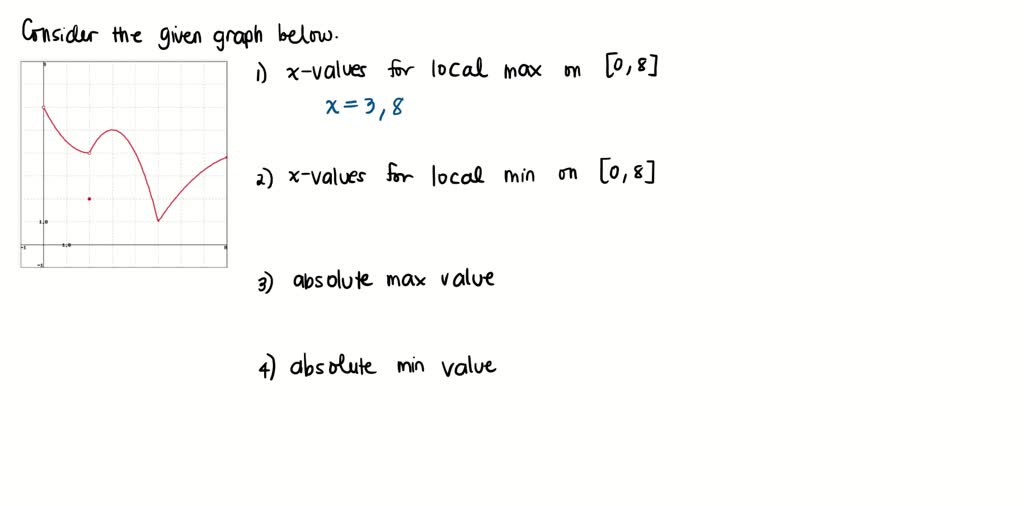 Consider the given graph below.
1) x-values for local max on [0,8]
x=3,8
2) x-values for local min on [0,8]
1.0
-1
1.0
8
-1
3) absolute max value
4) absolute min value